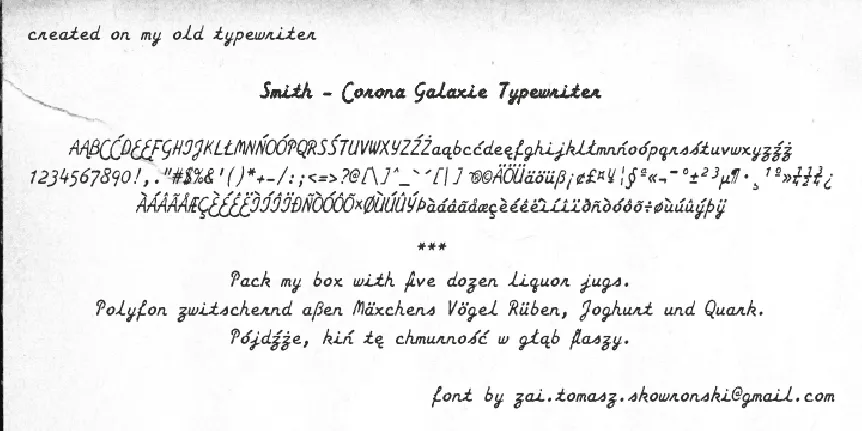 created on my old typewriter
Smith - Corona Galaxie Typewriter
AĄBCĆDEĘFGHIJKLŁMNŃOÓPQRSŚTUVWXYZŹŻaąbcćdeęfghijklłmnńoópqrsśtuvwxyzźż
1234567890!,."#$%&'()*+-/:;<=>?@[\]^_`´{|} ©®ÄÖÜäöüß¡¢£¤¥¦§ª«¬¯°±²³µ¶·¸¹º»¼½¾¿
ÀÁÂÃÅÆÇÈÉÊËÌÍÎÏÐÑÒÓÔÕ×ØÙÚÛÝÞàáâãåæçèéêëìíîïðñòóôõ÷øùúûýþÿ
***
Pack my box with five dozen liquor jugs.
Polyfon zwitschernd aßen Mäxchens Vögel Rüben, Joghurt und Quark.
Pójdźże, kiń tę chmurność w głąb flaszy.
font by zai.tomasz.skowronski@gmail.com